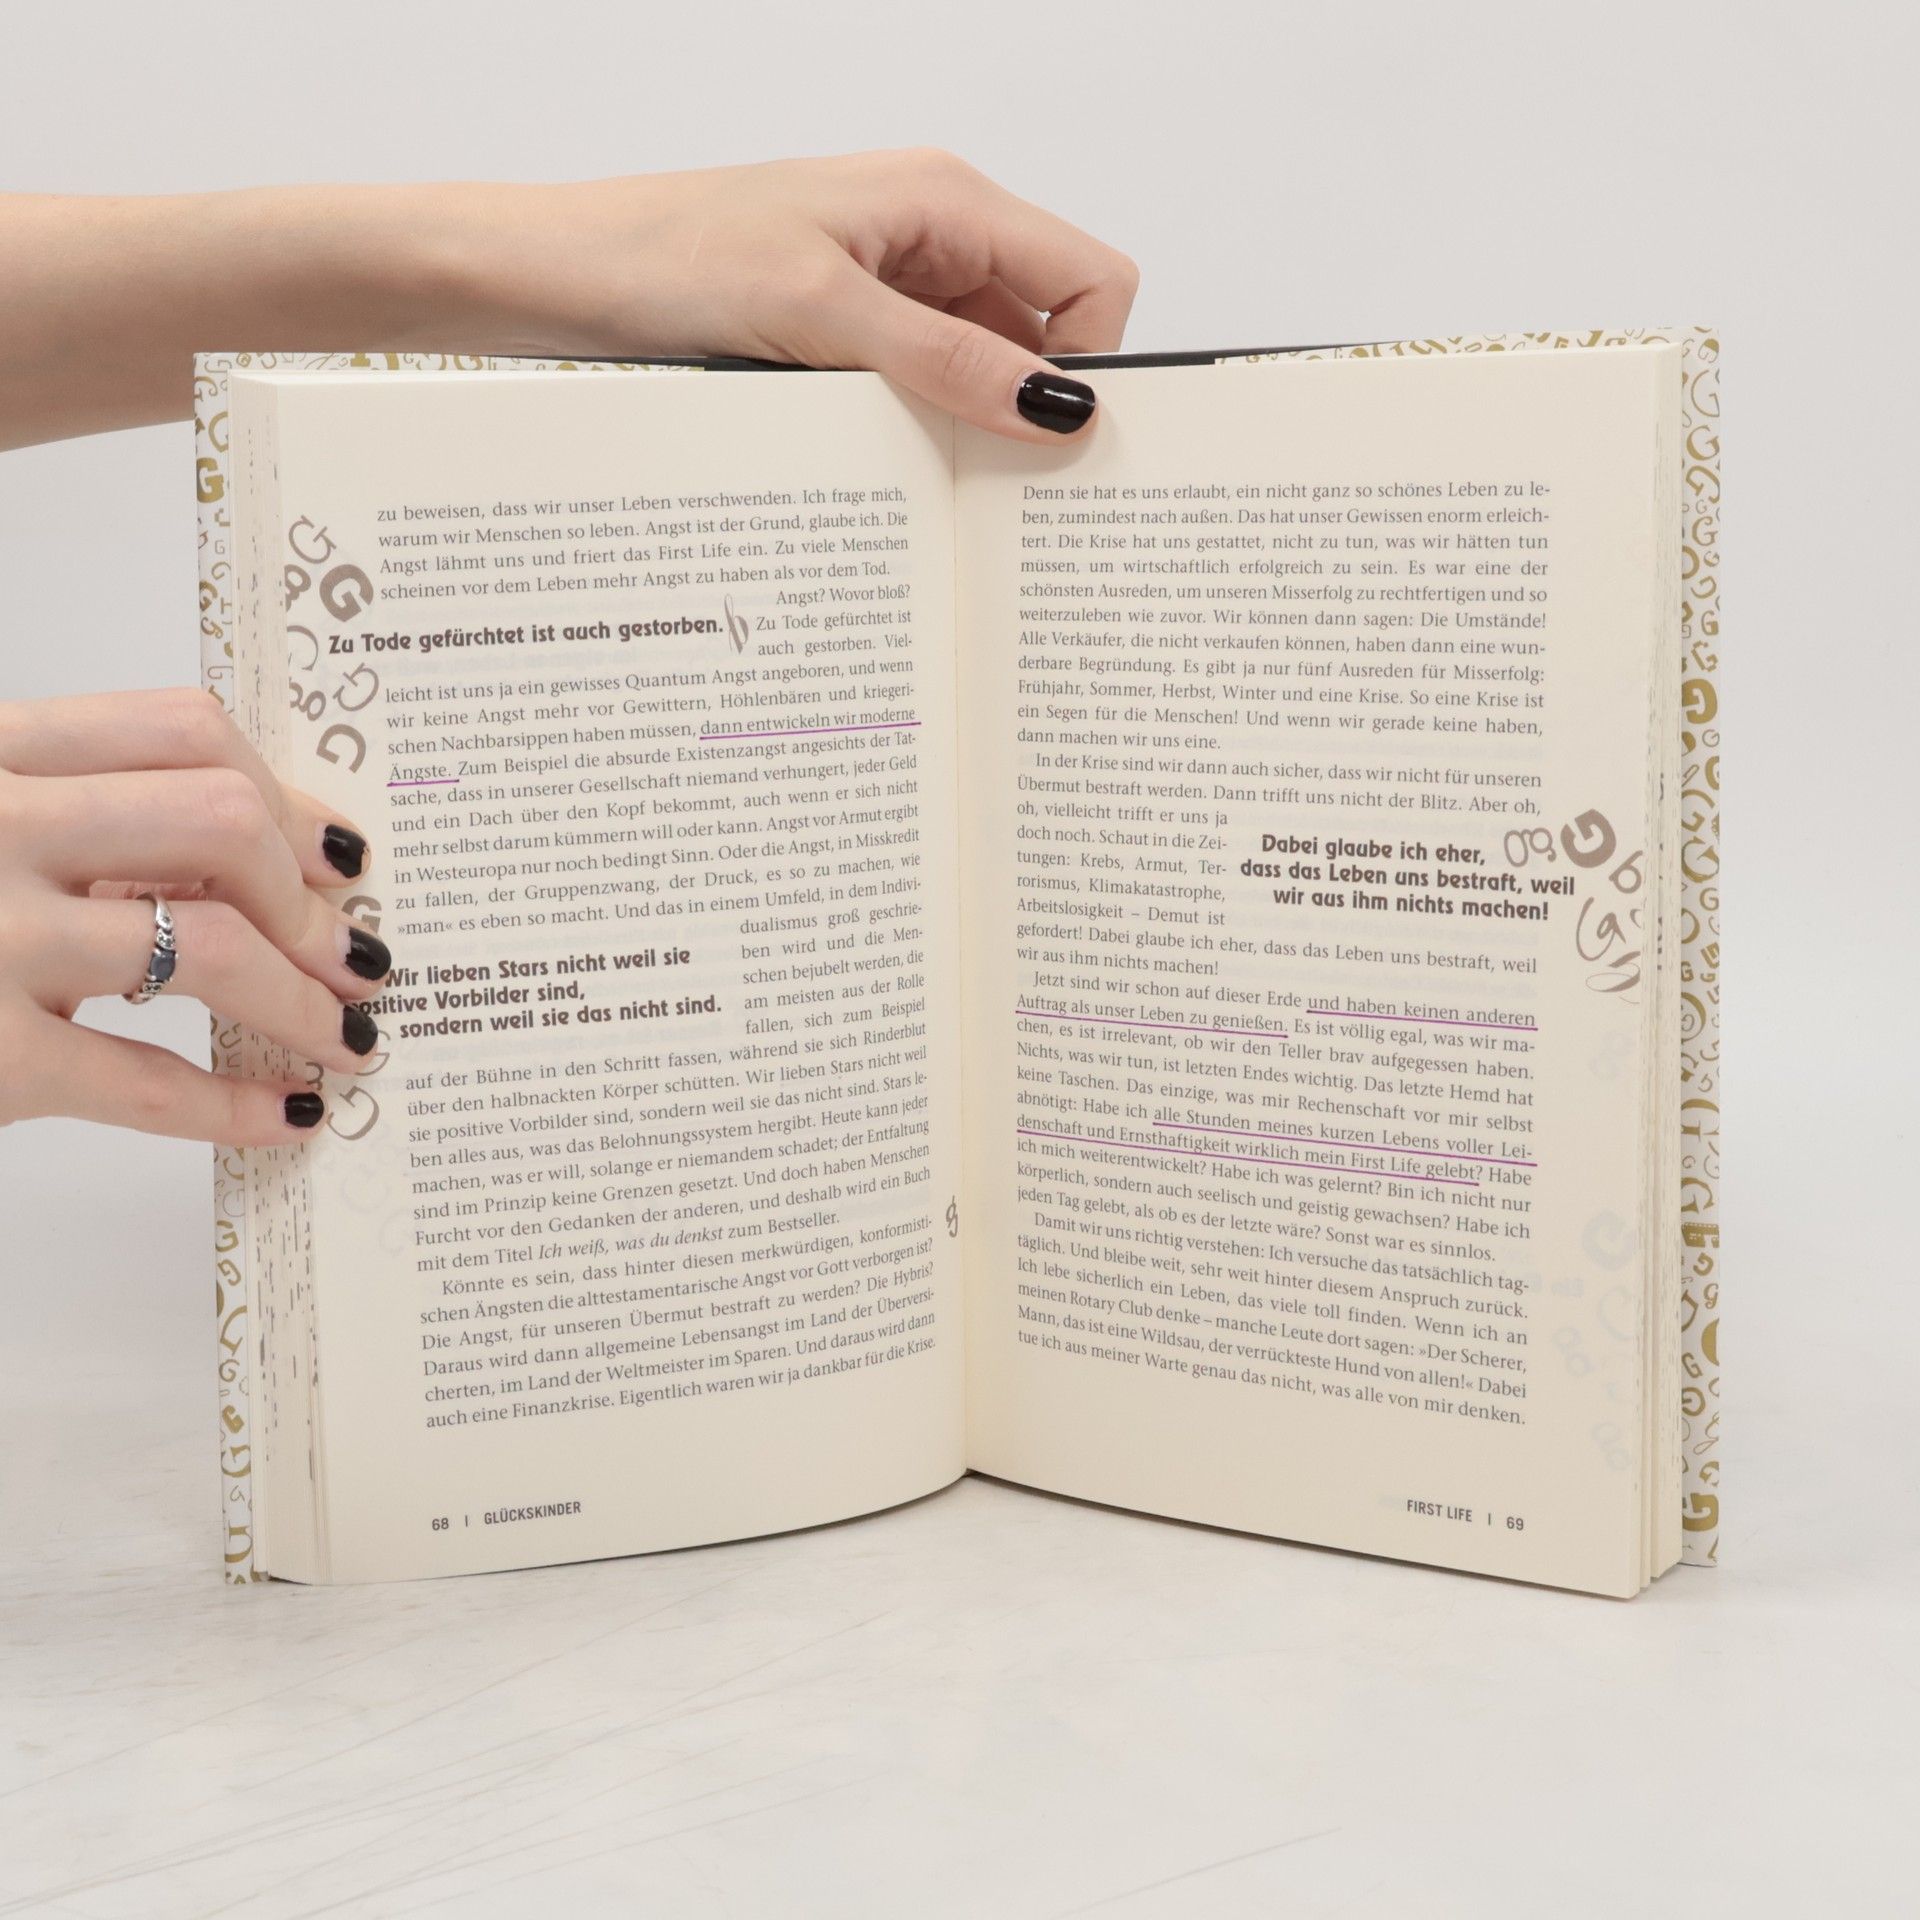 zu beweisen, dass wir unser Leben verschwenden. Ich frage mich,
warum wir Menschen so leben. Angst ist der Grund, glaube ich. Die
Angst lähmt uns und friert das First Life ein. Zu viele Menschen
scheinen vor dem Leben mehr Angst zu haben als vor dem Tod.
Angst? Wovor bloß?
Zu Tode gefürchtet ist auch gestorben.
Zu Tode gefürchtet ist
auch gestorben. Viel-
leicht ist uns ja ein gewisses Quantum Angst angeboren, und wenn
wir keine Angst mehr vor Gewittern, Höhlenbären und kriegeri-
schen Nachbarsippen haben müssen, dann entwickeln wir moderne
Ängste. Zum Beispiel die absurde Existenzangst angesichts der Tat-
sache, dass in unserer Gesellschaft niemand verhungert, jeder Geld
und ein Dach über den Kopf bekommt, auch wenn er sich nicht
mehr selbst darum kümmern will oder kann. Angst vor Armut ergibt
in Westeuropa nur noch bedingt Sinn. Oder die Angst, in Misskredit
zu fallen, der Gruppenzwang, der Druck, es so zu machen, wie
»man« es eben so macht. Und das in einem Umfeld, in dem Indivi-
dualismus groß geschrie-
ben wird und die Men-
schen bejubelt werden, die
am meisten aus der Rolle
fallen, sich zum Beispiel
Wir lieben Stars nicht weil sie
positive Vorbilder sind,
sondern weil sie das nicht sind.
auf der Bühne in den Schritt fassen, während sie sich Rinderblut
über den halbnackten Körper schütten. Wir lieben Stars nicht weil
sie positive Vorbilder sind, sondern weil sie das nicht sind. Stars le-
ben alles aus, was das Belohnungssystem hergibt. Heute kann jeder
machen, was er will, solange er niemandem schadet; der Entfaltung
sind im Prinzip keine Grenzen gesetzt. Und doch haben Menschen
Furcht vor den Gedanken der anderen, und deshalb wird ein Buch
mit dem Titel Ich weiß, was du denkst zum Bestseller.
Könnte es sein, dass hinter diesen merkwürdigen, konformisti-
schen Ängsten die alttestamentarische Angst vor Gott verborgen ist?
Die Angst, für unseren Übermut bestraft zu werden? Die Hybris?
Daraus wird dann allgemeine Lebensangst im Land der Überversi-
cherten, im Land der Weltmeister im Sparen. Und daraus wird dann
auch eine Finanzkrise. Eigentlich waren wir ja dankbar für die Krise.
68 | GLÜCKSKINDER
Denn sie hat es uns erlaubt, ein nicht ganz so schönes Leben zu le-
ben, zumindest nach außen. Das hat unser Gewissen enorm erleich-
tert. Die Krise hat uns gestattet, nicht zu tun, was wir hätten tun
müssen, um wirtschaftlich erfolgreich zu sein. Es war eine der
schönsten Ausreden, um unseren Misserfolg zu rechtfertigen und so
weiterzuleben wie zuvor. Wir können dann sagen: Die Umstände!
Alle Verkäufer, die nicht verkaufen können, haben dann eine wun-
derbare Begründung. Es gibt ja nur fünf Ausreden für Misserfolg:
Frühjahr, Sommer, Herbst, Winter und eine Krise. So eine Krise ist
ein Segen für die Menschen! Und wenn wir gerade keine haben,
dann machen wir uns eine.
In der Krise sind wir dann auch sicher, dass wir nicht für unseren
Übermut bestraft werden. Dann trifft uns nicht der Blitz. Aber oh,
oh, vielleicht trifft er uns ja
doch noch. Schaut in die Zei-
tungen: Krebs, Armut, Ter-
rorismus, Klimakatastrophe,
Arbeitslosigkeit – Demut ist
Dabei glaube ich eher,
dass das Leben uns bestraft, weil
wir aus ihm nichts machen!
gefordert! Dabei glaube ich eher, dass das Leben uns bestraft, weil
wir aus ihm nichts machen!
Jetzt sind wir schon auf dieser Erde und haben keinen anderen
Auftrag als unser Leben zu genießen. Es ist völlig egal, was wir ma-
chen, es ist irrelevant, ob wir den Teller brav aufgegessen haben.
Nichts, was wir tun, ist letzten Endes wichtig. Das letzte Hemd hat
keine Taschen. Das einzige, was mir Rechenschaft vor mir selbst
abnötigt: Habe ich alle Stunden meines kurzen Lebens voller Lei-
denschaft und Ernsthaftigkeit wirklich mein First Life gelebt? Habe
ich mich weiterentwickelt? Habe ich was gelernt? Bin ich nicht nur
körperlich, sondern auch seelisch und geistig gewachsen? Habe ich
jeden Tag gelebt, als ob es der letzte wäre? Sonst war es sinnlos.
Damit wir uns richtig verstehen: Ich versuche das tatsächlich tag-
täglich. Und bleibe weit, sehr weit hinter diesem Anspruch zurück.
Ich lebe sicherlich ein Leben, das viele toll finden. Wenn ich an
meinen Rotary Club denke – manche Leute dort sagen: »Der Scherer,
Mann, das ist eine Wildsau, der verrückteste Hund von allen!« Dabei
tue ich aus meiner Warte genau das nicht, was alle von mir denken.
FIRST LIFE | 69